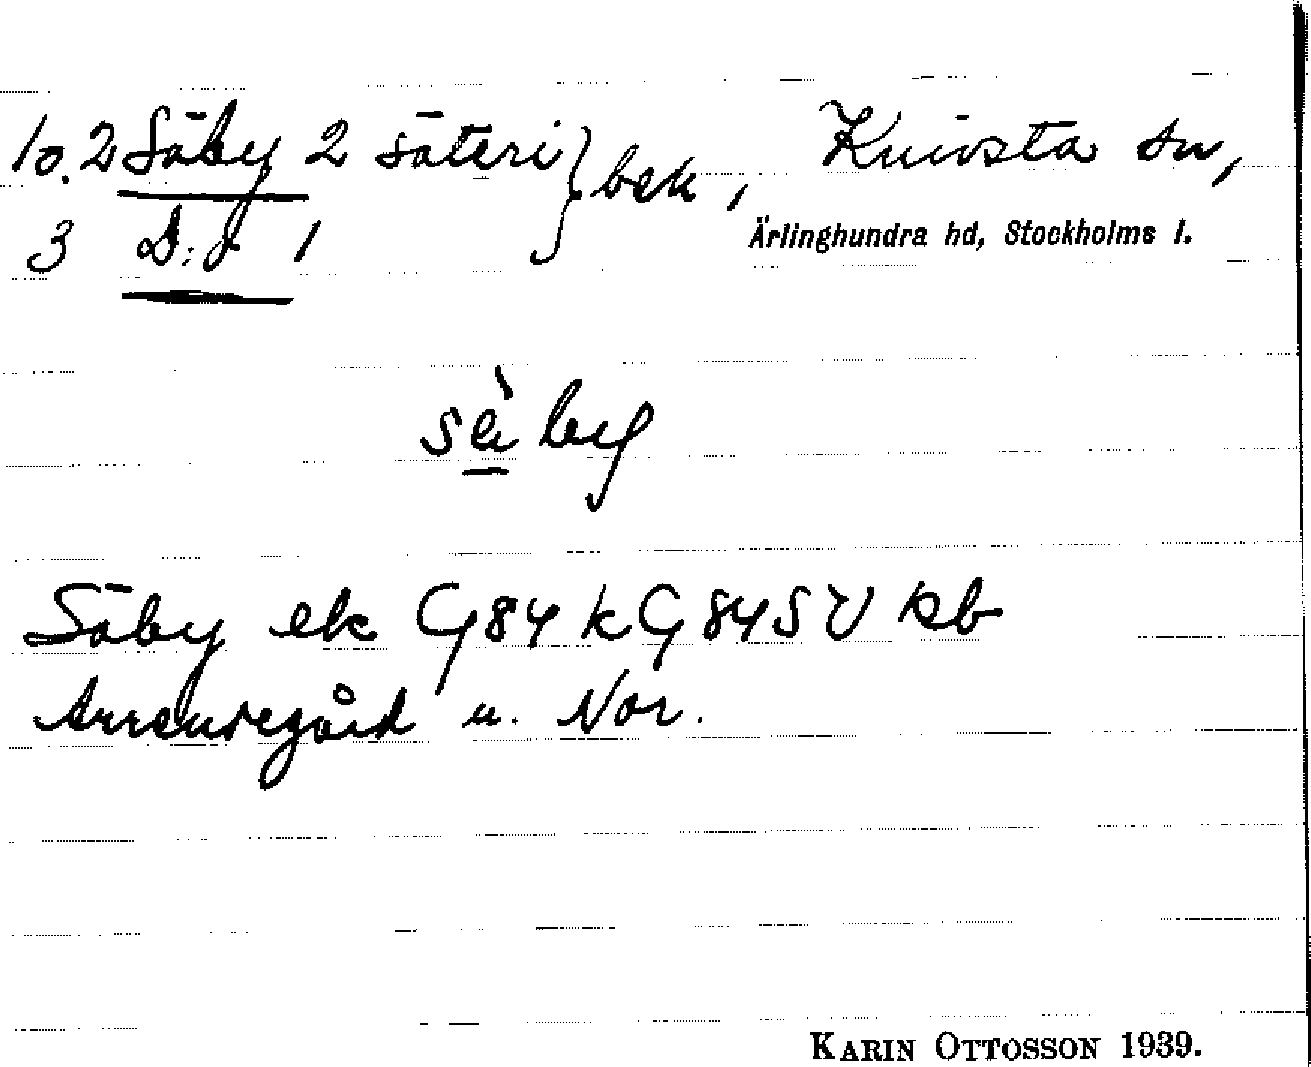 10.2 Säby 2 säteri } bek, Knivsta sn,
3 D:o 1
Ärlinghundra hd, Stockholms l.
sä̀by
Säby ek G84 k G84SV kb
Arrendegård u. Nor.
KARIN OTTOSSON 1939.